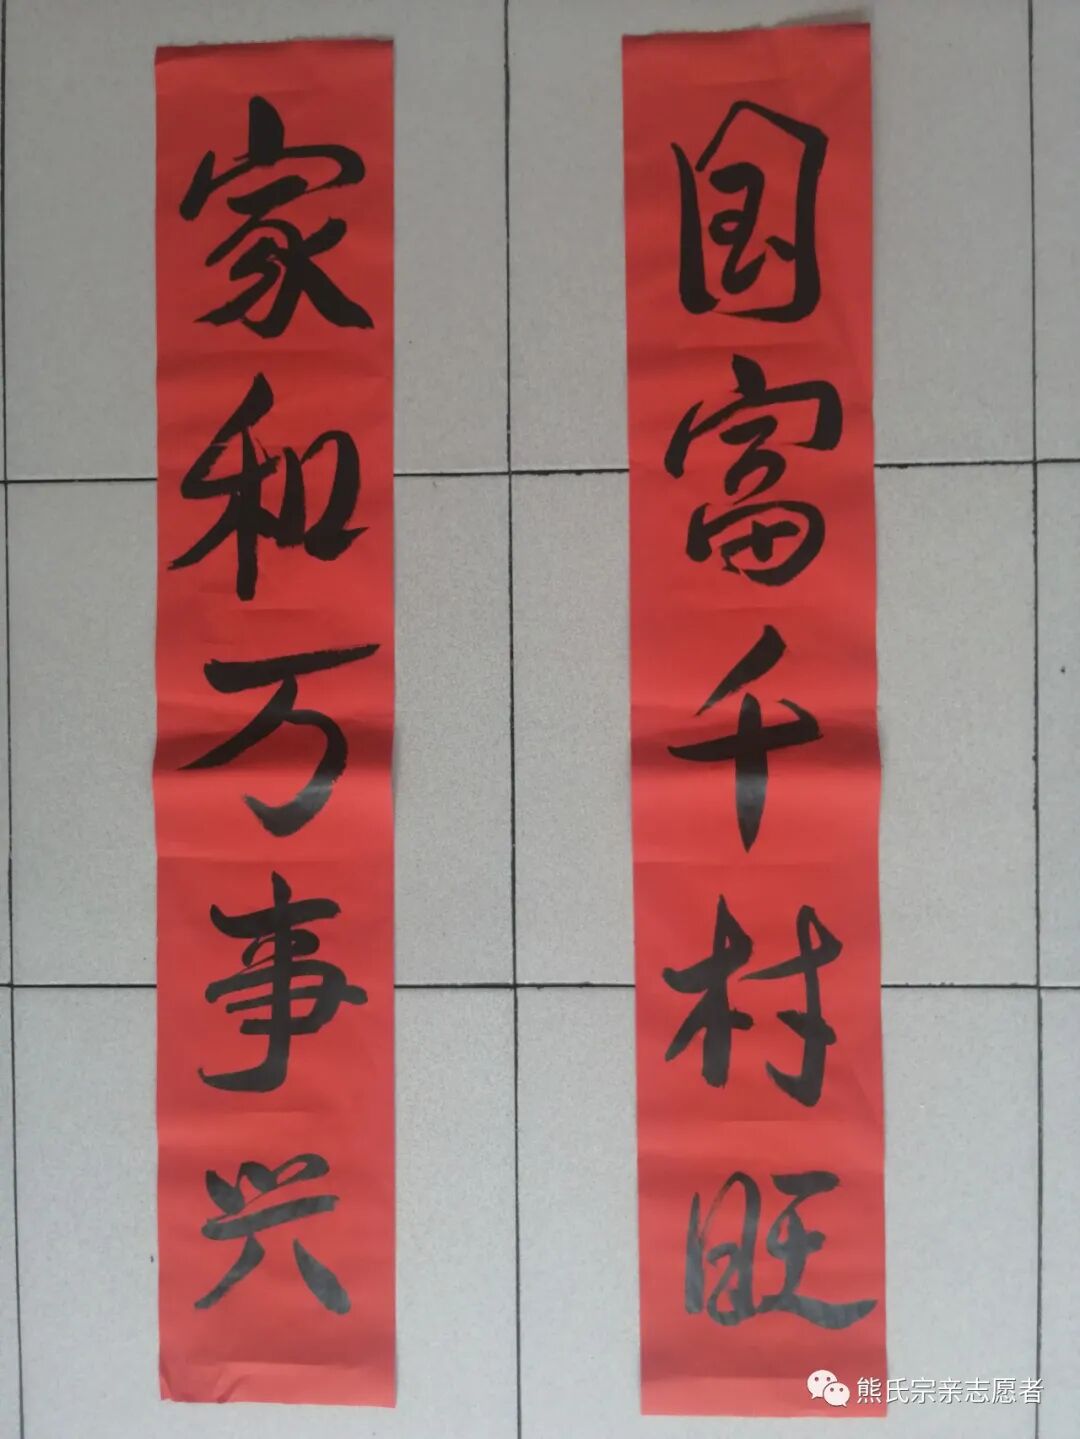 国富千村旺
家和万事兴
熊氏宗亲志愿者